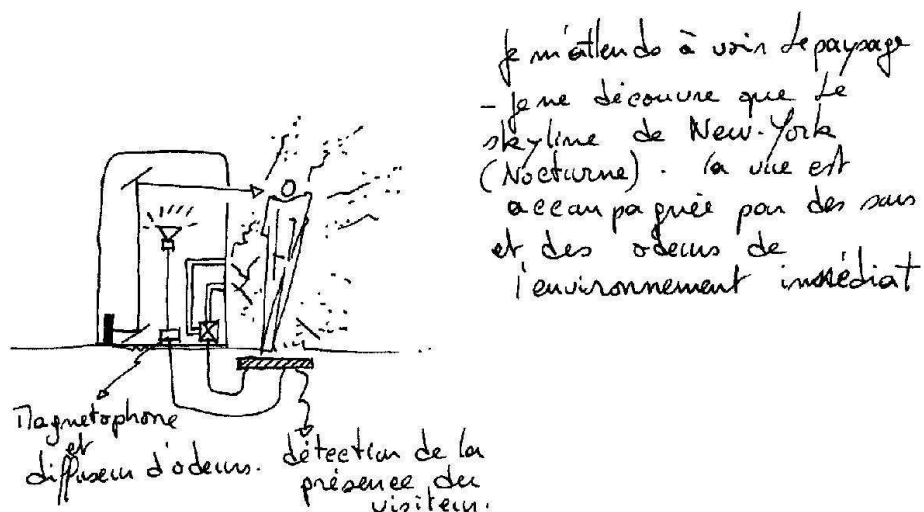 Je m'attends à voir le paysage
- je ne découvre que le
skyline de New-York
(Nocturne). la vue est
accompagnée par des sons
et des odeurs de
l'environnement immédiat
Magnetophone
et
diffuseur d'odeurs.
détection de la
présence du
visiteur.